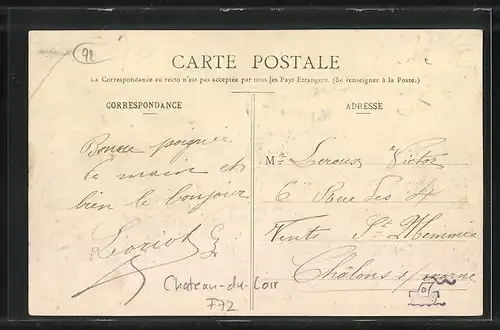 72
CARTE POSTALE
La Correspondance au recto n'est pas acceptée par tous les Pays Etrangers. (Se renseigner à la Poste.)
CORRESPONDANCE
ADRESSE
Bonne poignée
de main et
bien le bonjour
Loriot
Mr Leroux Victor
6 Rue des 4
Vents St Memmie
Châlons s/ marne
Chateau-du-Loir
F72